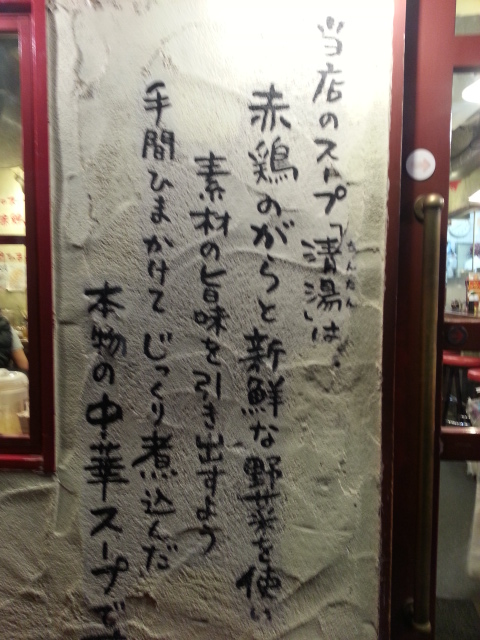 当店のスープ「清湯」は・
ちんたん
赤鶏のがらと新鮮な野菜を使い
素材の旨味を引き出すよう
手間ひまかけてじっくり煮込んだ
本物の中華スープで